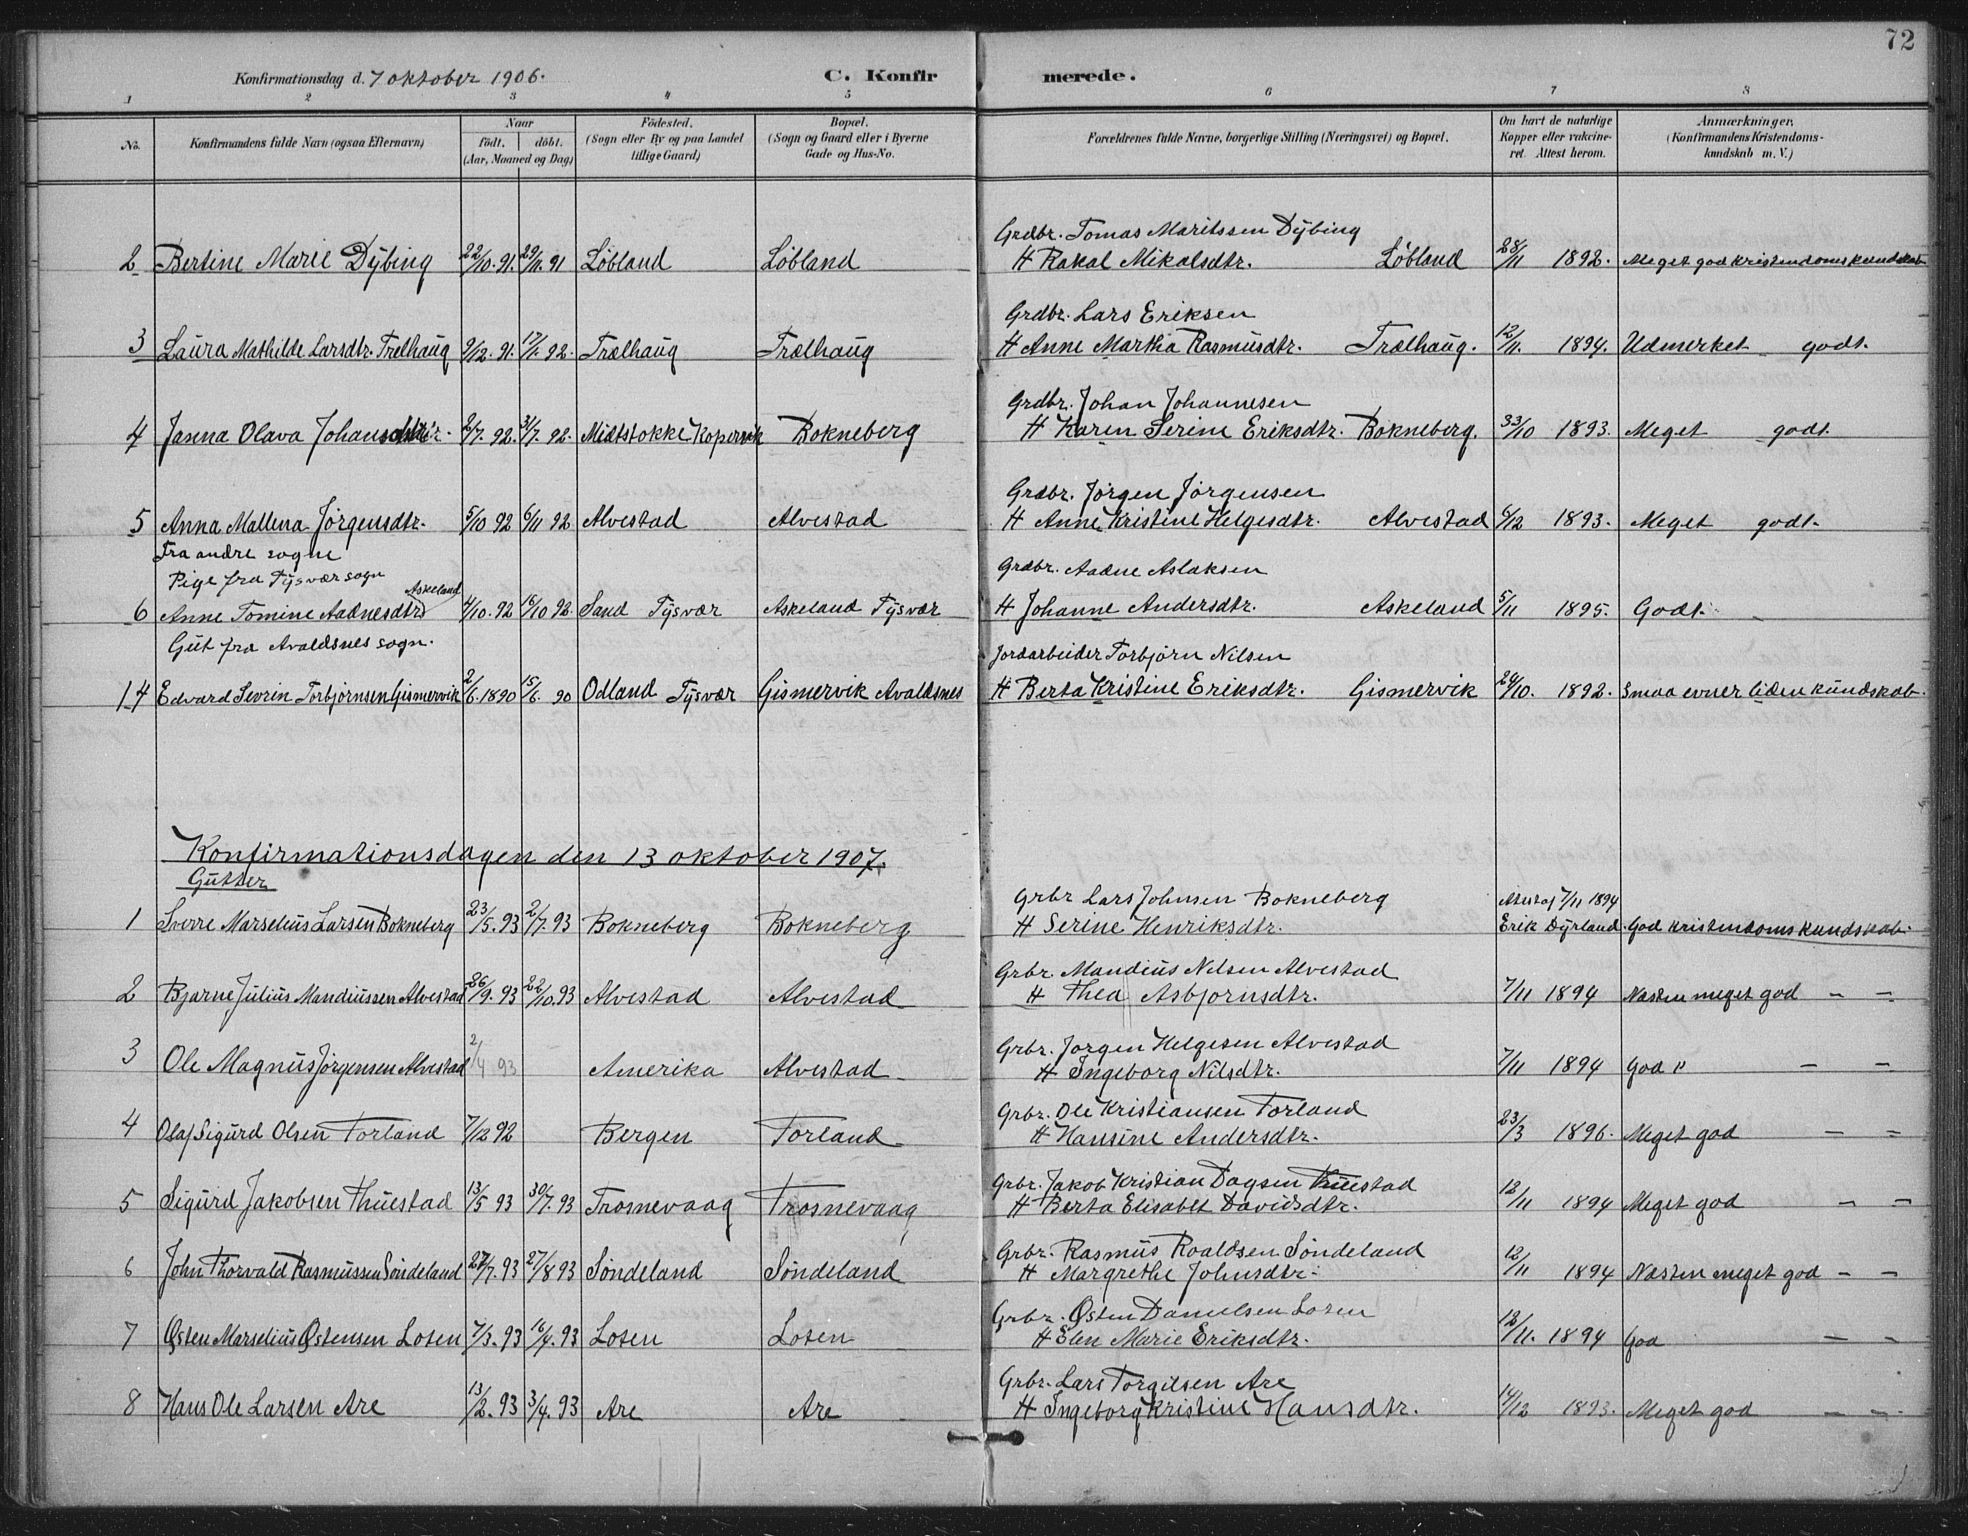 72
Konfirmationsdag d. 7 oktober 1906. C. Konfirmerede.
1 2 3 4 5 6 7 8
No. Konfirmandens fulde Navn (ogsaa Efternavn) Naar födt. döbt. (Aar, Maaned og Dag) Födested. (Sogn eller By og paa Landet tillige Gaard) Bopæl. (Sogn og Gaard eller i Byerne Gade og Hus-No. Forældrenes fulde Navne, borgerlige Stilling (Næringsvei) og Bopæl. Om havt de naturlige Kopper eller vakcineret. Attest herom. Anmærkninger. (Konfirmandens Kristendomskundskab m. V.)
Grdbr. Tomas Maritssen Dÿbing
2 Bertine Marie Dÿbing 22/10. 91. 29/11. 91 Løbland Løbland H Rakal Mikalsdtr. Løbland 28/11 1892. Meget god kristendomskundskab
Grdbr. Lars Eriksen
3 Laura Mathilde Larsdtr. Trælhaug 9/12. 91. 17/1. 92. Trælhaug Trælhaug H Anne Martha Rasmusdtr. Trælhaug. 12/11. 1894. Udmerket godt.
Grdbr. Johan Johannesen
4 Janna Olava Johansdtr. 2/7. 92. 31/7. 92. Midtstokke Kopervik Bokneberg H Karen Serine Eriksdtr. Bokneberg. 33/10 1893. Meget godt.
Grdbr. Jørgen Jørgensen
5 Anna Mallena Jørgensdtr. 5/10 92 6/11 92 Alvestad Alvestad H Anne Kristine Helgesdtr. Alvestad 8/12 1893. Meget godt.
Fra andre sogne
Pige fra Tÿsvær sogn Grdbr. Aadne Aslaksen
Askeland
6 Anne Tomine Aadnesdtr. 4/10. 92 16/10 92. Sand Tÿsvær Askeland Tÿsvær H Johanne Andersdtr. Askeland 5/11 1895. Godt.
Gut fra Avaldsnes sogn. Jordarbeider Torbjørn Nilsen
14 Edvard Sevrin Torbjørnsen Gismervik 2/6. 1890 15/6. 90 Odland Tÿsvær Gismervik Avaldsnes H Berta Kristine Eriksdtr. Gismervik 24/10. 1892. Smaa evner liden kundskab.
Konfirmationsdagen den 13 oktober 1907.
Gutter
Grbr Lars Johnsen Bokneberg 7/11 1894
1 Sverre Marselius Larsen Bokneberg 23/5. 93 2/7. 93 Bokneberg Bokneberg H Serine Henriksdtr. Erik Dÿrland. God kristendomskundskab.
Grbr. Mandius Nilsen Alvestad
2 Bjarne Julius Mandiussen Alvestad 26/9. 93 22/10. 93 Alvestad Alvestad H Thea Asbjørnsdtr. 7/11 1894 Næsten meget god — —
Grbr. Jørgen Helgesen Alvestad
3 Ole Magnus Jørgensen Alvestad 2/4 93 Amerika Alvestad H Ingeborg Nilsdtr. 7/11 1894 God " — —
Grbr. Ole Kristiansen Forland
4 Olaf Sigurd Olsen Forland 7/12 92 Bergen Forland H Hansine Andersdtr. 23/3 1896. Meget god — =
Grbr. Jakob Kristian Dagsen Thuestad
5 Sigurd Jakobsen Thuestad 13/5 93 30/7. 93 Trosnevaag Trosnevaag H Berta Elisabet Davidsdtr. 12/11 1894 Meget god — —
Grbr. Rasmus Roaldsen Søndeland
6 John Thorvald Rasmussen Søndeland 27/7. 93 27/8 93 Søndeland Søndeland H Margrethe Johnsdtr. 12/11 1894 Næsten meget god — —
Grbr. Østen Danielsen Loten
7 Østen Marselius Østensen Loten 7/3. 93 16/4. 93 Loten Loten H Elen Marie Eriksdtr. 12/11. 1894 God — -
Grbr. Lars Torgilsen Are
8 Hans Ole Larsen Are 13/2. 93 3/4. 93 Are Are H Ingeborg Kristine Hansdtr. 14/12 1893. Meget god — —